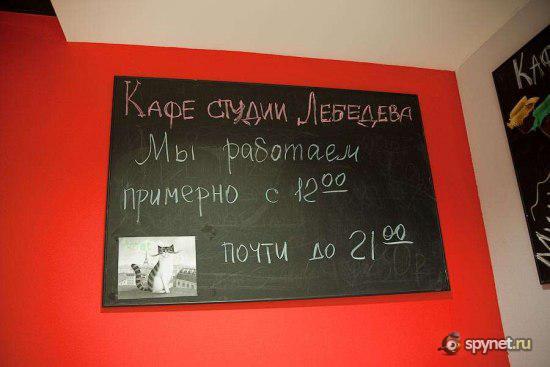 Кафе студии Лебедева
Мы работаем
примерно с 12 00
почти до 21 00
spynet.ru